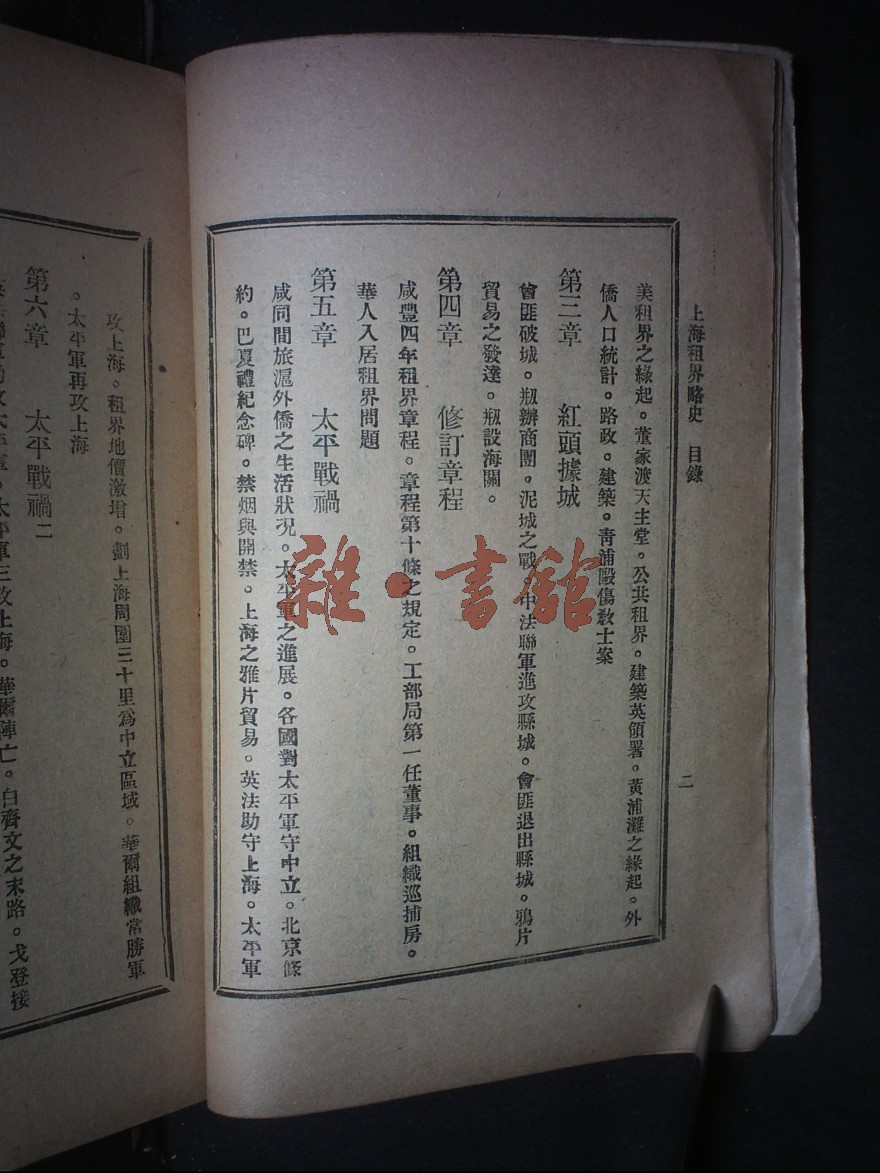 上海租界略史　目錄
二
美租界之緣起。董家渡天主堂。公共租界。建築英領署。黃浦灘之緣起。外
僑人口統計。路政。建築。靑浦毆傷敎士案
第三章　紅頭據城
會匪破城。剏辦商團。泥城之戰。中法聯軍進攻縣城。會匪退出縣城。鴉片
貿易之發達。剏設海關。
第四章　修訂章程
咸豐四年租界章程。章程第十條之規定。工部局第一任董事。組織巡捕房。
華人入居租界問題
第五章　太平戰禍
咸同間旅滬外僑之生活狀況。太平軍之進展。各國對太平軍守中立。北京條
約。巴夏禮紀念碑。禁烟與開禁。上海之雅片貿易。英法助守上海。太平軍
攻上海。租界地價激增。劃上海周圍三十里爲中立區域。華爾組織常勝軍
。太平軍再攻上海
第六章　太平戰禍二
太平軍三攻上海。華爾陣亡。白齊文之末路。戈登接
雜·書館